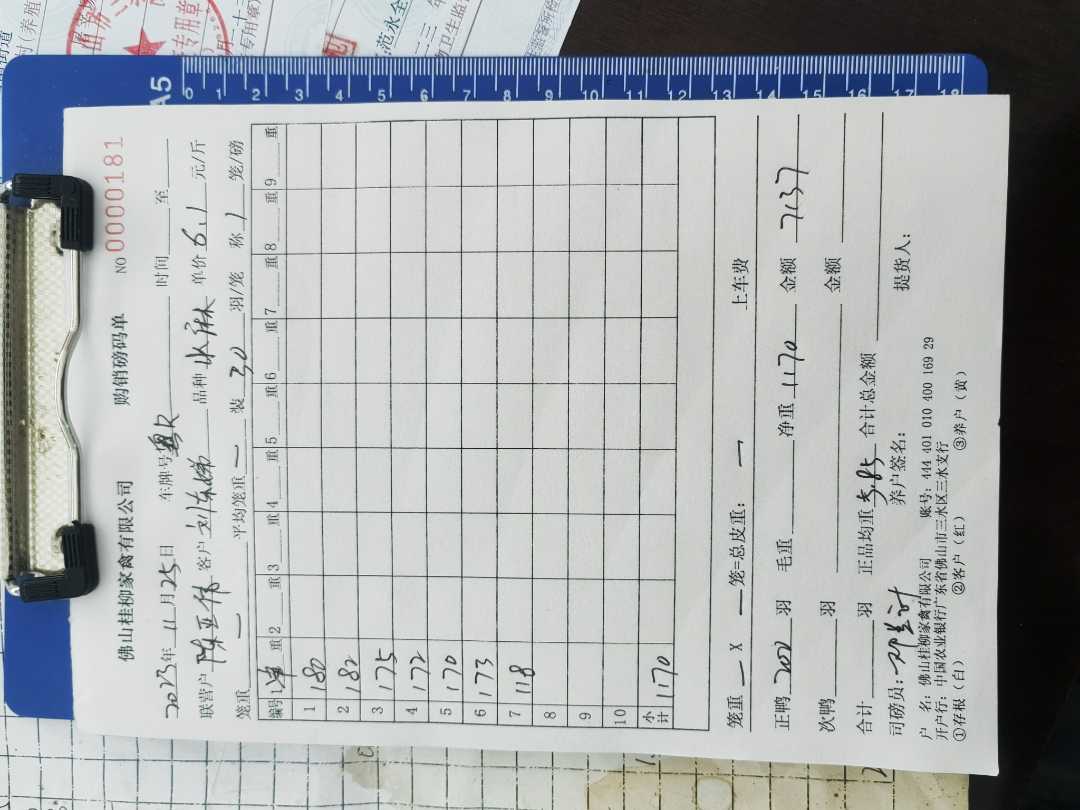 佛山桂柳家禽有限公司 购销磅码单 NO 0000181
2023年 11月25日 车牌号 粤R 时间 至
联营户 陈亚伟 客户 刘东娣 品种 水麻 单价 6.1 元/斤
笼重 — 平均笼重 — 装 30 羽/笼 称 1 笼/磅
编号 1 净重 2 重 3 重 4 重 5 重 6 重 7 重 8 重 9 重
1 180
2 182
3 175
4 172
5 170
6 173
7 118
8
9
10
小计 1170
笼重 — X — 笼=总皮重: — 上车费
正鸭 200 羽 毛重 净重 1170 金额 7137
次鸭 羽 金额
合计 羽 正品均重 5.85 合计总金额
司磅员: 养户签名: 提货人:
户 名: 佛山桂柳家禽有限公司 账号: 444 401 010 400 169 29
开户行: 中国农业银行广东省佛山市三水区三水支行
①存根(白) ②客户(红) ③养户(黄)
A5
0 1 2 3 4 5 6 7 8 9 10 11 12 13 14 15 16 17 18
专用章